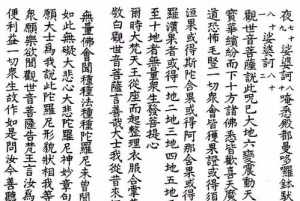 夜 娑婆訶 唵悉殿都曼哆囉鉢馱
八十 娑婆訶 八十
觀世音菩薩說此呪已大地六變震動天
寶華繽紛而下十方諸佛悉皆歡喜天魔
道恐怖毛豎一切衆會皆獲果證或得須
洹果或得斯陀含果或得阿那含果或得
羅漢果者或得一地二地三地四地五地
至十地者無量衆生發菩提心
爾時大梵天王從座而起整理衣服合掌
敬白觀世音菩薩言善哉大士我從昔來
無量佛會聞種種法種種陀羅尼未曾聞
如此無礙大悲心大悲陀羅尼神妙章句
願大士爲我說此陀羅尼形貌狀相我等
衆願欲聞觀世音菩薩告梵王言汝爲
便利益一切衆生故作如是問汝今善聽